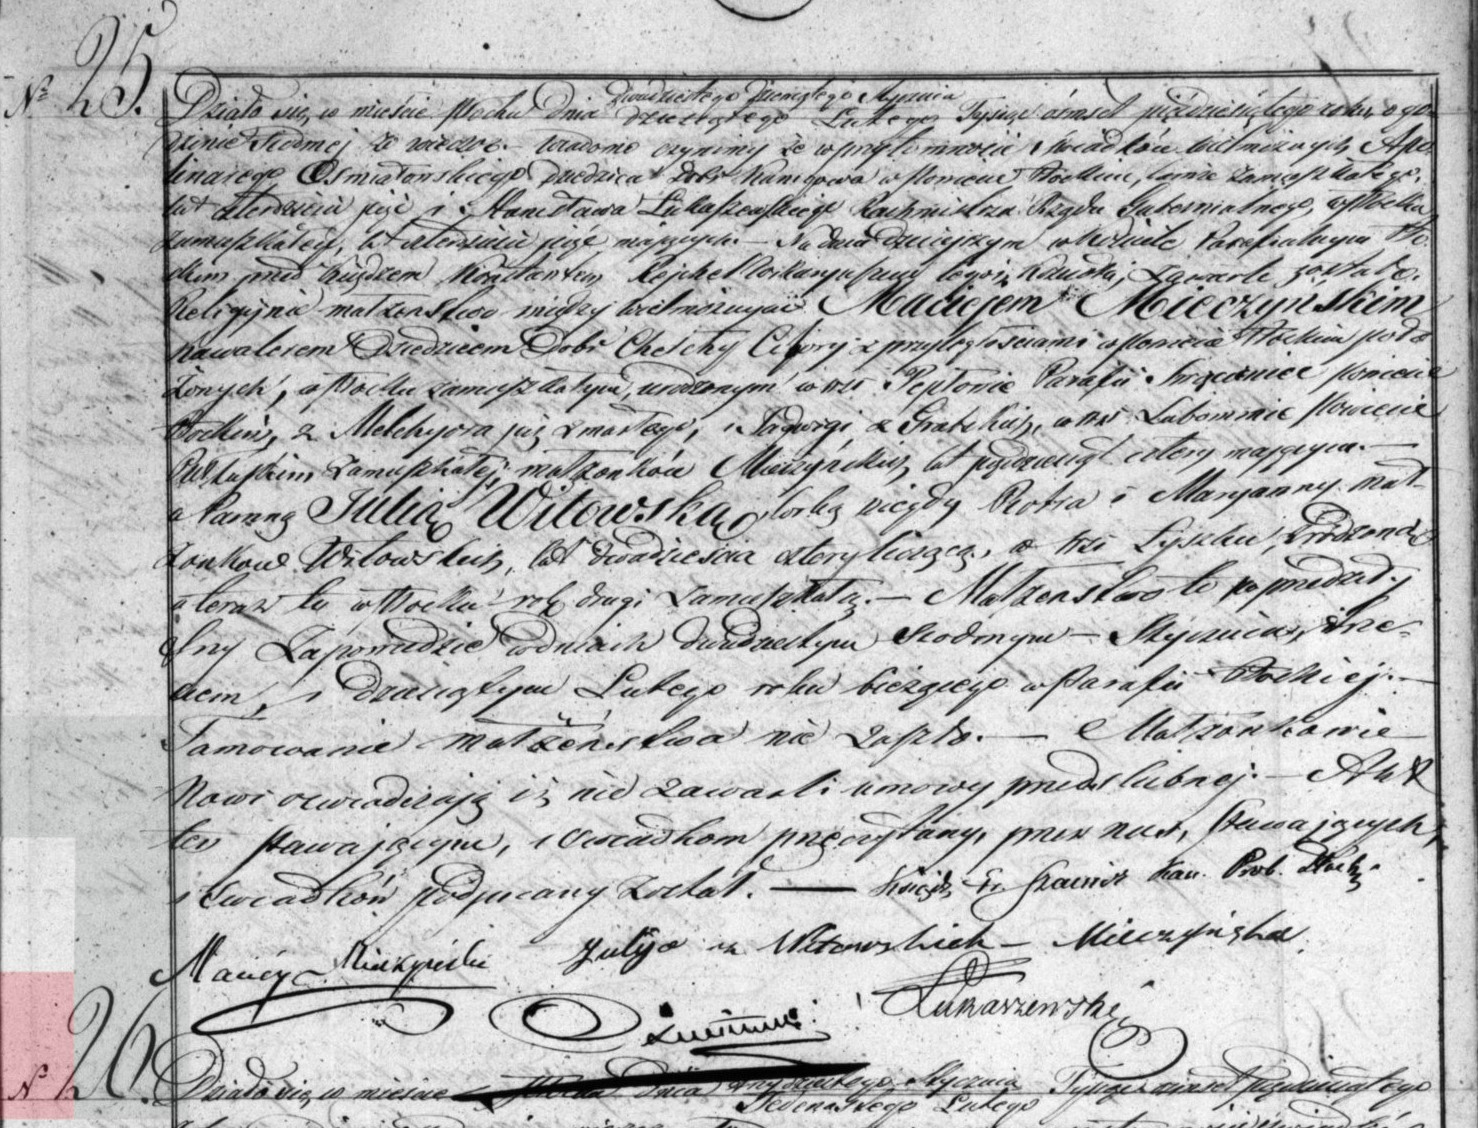 Nº 25.
Działo się w mieście Płocku dnia dwudziestego dziewiątego Stycznia
dziesiątego Lutego Tysiąc ośmset pięćdziesiątego roku, o go-
dzinie siodmej w wieczor.- Wiadomo czynimy że w przytomności świadków Wielmożnych Apo-
linarego Osmiałowskiego Dziedzica dobr w Powiecie Płockim, tamże zamieszkałego.
lat czterdzieści pięć i Stanisława Łukaszewskiego Rachmistrza Rządu Gubernialnego, w Płocku
zamieszkałego, lat czterdzieści pięć mających.- Na dniu dzisiejszym w Kościele Parafialnym Pło-
ckim przed Księdzem Konstantym Rejchel Wikaryuszem tegoż Kościoła, zawarte zostało
Religijne małżeństwo między Wielmożnym Maciejem Mieczyńskim
Kawalerem Dziedzicem Dobr Chełchy z przyległościami w Powiecie Płockim poło-
żonych, w Płocku zamieszkałym, urodzonym w wsi Peptowie Parafii Powiecie
Płockim, z Melchyora już zmarłego, i Jadwigi z w wsi Lubominie Powiecie
Pułtuskim zamieszkałej, małżonków Mieczyńskich, lat pięćdziesiąt cztery mającym.-
a Panną Julią Witowską, córką niegdy Piotra i Maryanny mał-
żonków Witowskich, lat dwadzieścia cztery liczącą, w wsi urodzoną
a teraz tu w Płocku rok drugi zamieszkałą.- Małżeństwo to poprzedziły
Zapowiedzie w dniach dwudziestym siodmym - Stycznia, trze-
ciem, i dziesiątym Lutego roku bieżącego w Parafii Płockiej.-
Tamowanie małżeństwa nie zaszło.- Małżonkowie
Nowi oświadczają iż nie zawarli umowy przedślubnej.- Akt
ten stawającym, i świadkom przeczytany, przez nas, stawających,
i świadków podpisany został. — Ksiądz Kan. Prob. Płocki.
Maciej Mieczyński Julija z Witowskich - Mieczyńska
Łukaszewski
Nº 26.
Działo się w mieście Płocku dnia trzydziestego Stycznia
Jedenastego Lutego Tysiąc ośmset pięćdziesiątego